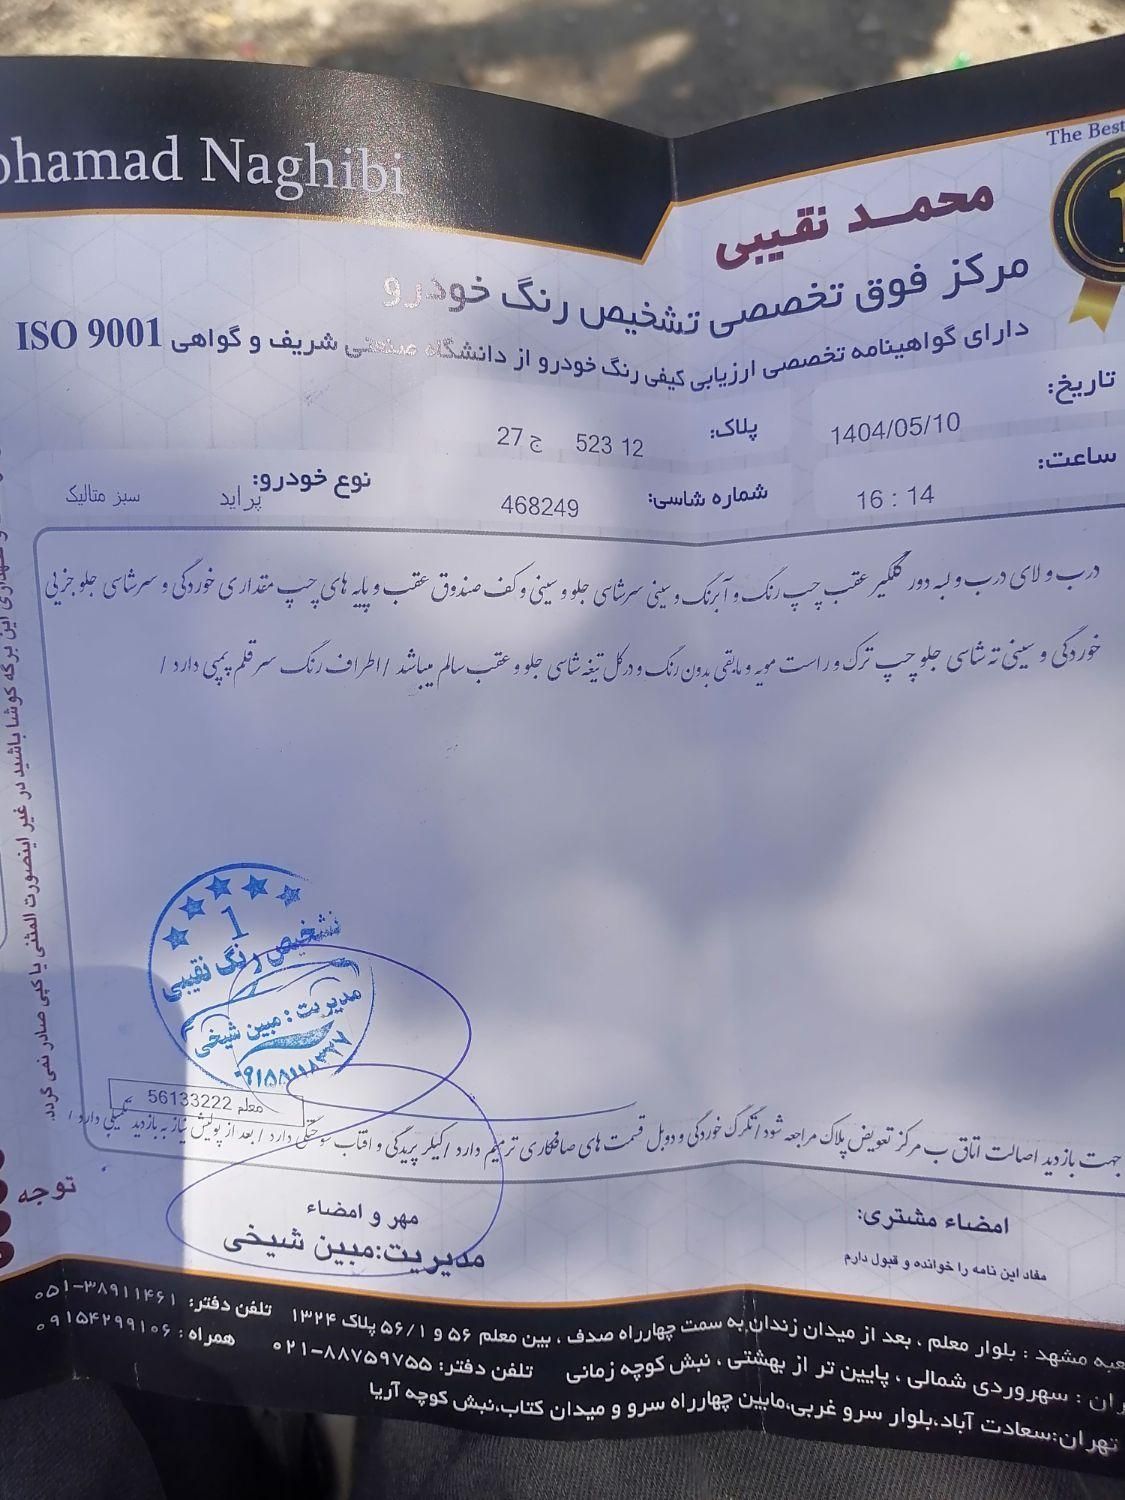 ohamad Naghibi
The Best
1
محمـد نقیبی
مرکز فوق تخصصی تشخیص رنگ خودرو
دارای گواهینامه تخصصی ارزیابی کیفی رنگ خودرو از دانشگاه صنعتی شریف و گواهی ISO 9001
تاریخ: 1404/05/10
پلاک: 12 523 ج 27
ساعت: 16 : 14
شماره شاسی: 468249
نوع خودرو: پراید سبز متالیک
درب و لای درب و لبه دور گلگیر عقب چپ رنگ و آبرنگ و سینی سرشاسی جلو و سینی و کف صندوق عقب و پایه های چپ مقداری خوردگی و سرشاسی جلو جزیی
خوردگی و سینی ته شاسی جلو چپ ترک و راست مویه و مابقی بدون رنگ و در کل تیغه شاسی جلو و عقب سالم میباشد / اطراف رنگ سر قلم پمپی دارد /
1
تشخیص رنگ نقیبی
مدیریت : مبین شیخی
معلم 56133222
جهت بازدید اصالت اتاق ب مرکز تعویض پلاک مراجعه شود / تگرگ خوردگی و دوبل قسمت های صافکاری ترمیم دارد / کیلر پریدگی و افتاب سوختگی دارد / بعد از پولیش نیاز به بازدید تکمیلی دارد /
امضاء مشتری:
مفاد این نامه را خوانده و قبول دارم
مهر و امضاء
مدیریت:مبین شیخی
توجه
این برگه کوشا باشید در غیر اینصورت المثنی یا کپی صادر نمی گردد.
عبه مشهد : بلوار معلم ، بعد از میدان زندان به سمت چهارراه صدف ، بین معلم ۵۶ و ۵۶/۱ پلاک ۱۳۲۴ تلفن دفتر: ۰۵۱-۳۸۹۱۱۴۶۱
ران : سهروردی شمالی ، پایین تر از بهشتی ، نبش کوچه زمانی تلفن دفتر: ۰۲۱-۸۸۷۵۹۷۵۵ همراه : ۰۹۱۵۴۲۹۹۱۰۶
تهران:سعادت آباد،بلوار سرو غربی،مابین چهارراه سرو و میدان کتاب،نبش کوچه آریا